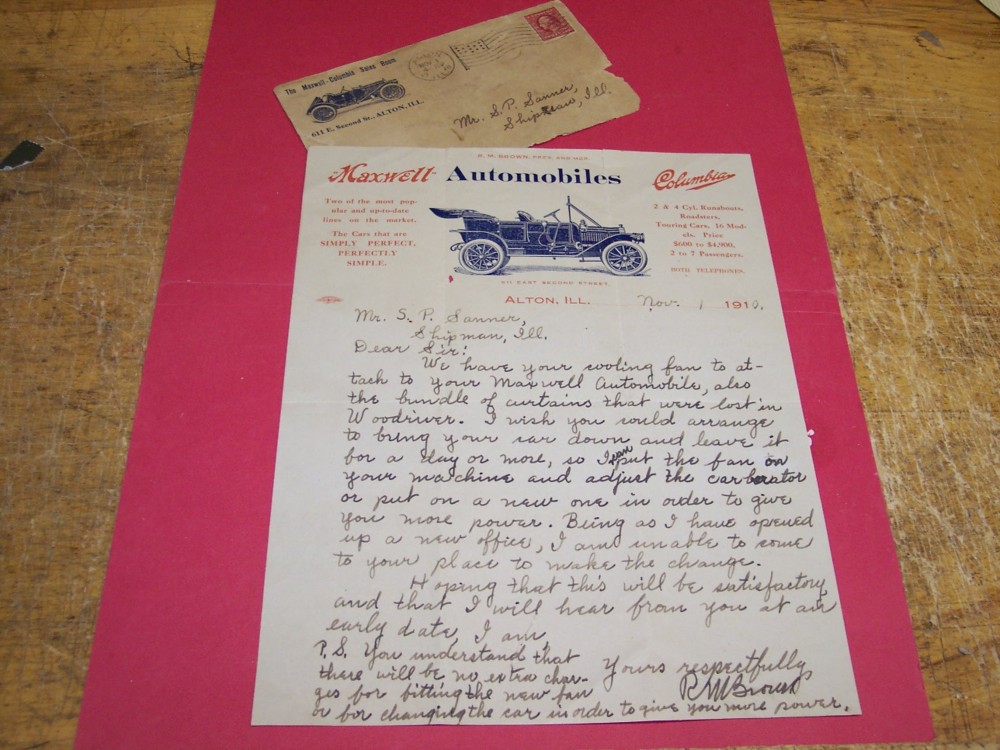 The Maxwell-Columbia Sales Room
611 E. Second St., ALTON, ILL.
Mr. S. P. Sanner,
Ill.
R. M. BROWN, PRES. AND MGR.
Maxwell Automobiles Columbia
Two of the most pop-
ular and up-to-date
lines on the market.
The Cars that are
SIMPLY PERFECT,
PERFECTLY
SIMPLE.
2 & 4 Cyl. Runabouts,
Roadsters,
Touring Cars, 16 Mod-
els. Price
$600 to $4,900,
2 to 7 Passengers.
BOTH TELEPHONES.
611 EAST SECOND STREET.
ALTON, ILL. Nov. 1 1910.
Mr. S. P. Sanner,
Shipman, Ill.
Dear Sir:
We have your cooling fan to at-
tach to your Maxwell Automobile, also
the bundle of curtains that were lost in
Woodriver. I wish you would arrange
to bring your car down and leave it
for a day or more, so I can put the fan on
your machine and adjust the carberator
or put on a new one in order to give
you more power. Being as I have opened
up a new office, I am unable to come
to your place to make the change.
Hoping that this will be satisfactory
and that I will hear from you at an
early date, I am,
Yours respectfully
R M Brown
P. S. You understand that
there will be no extra char-
ges for fitting the new fan
or for changing the car in order to give you more power.